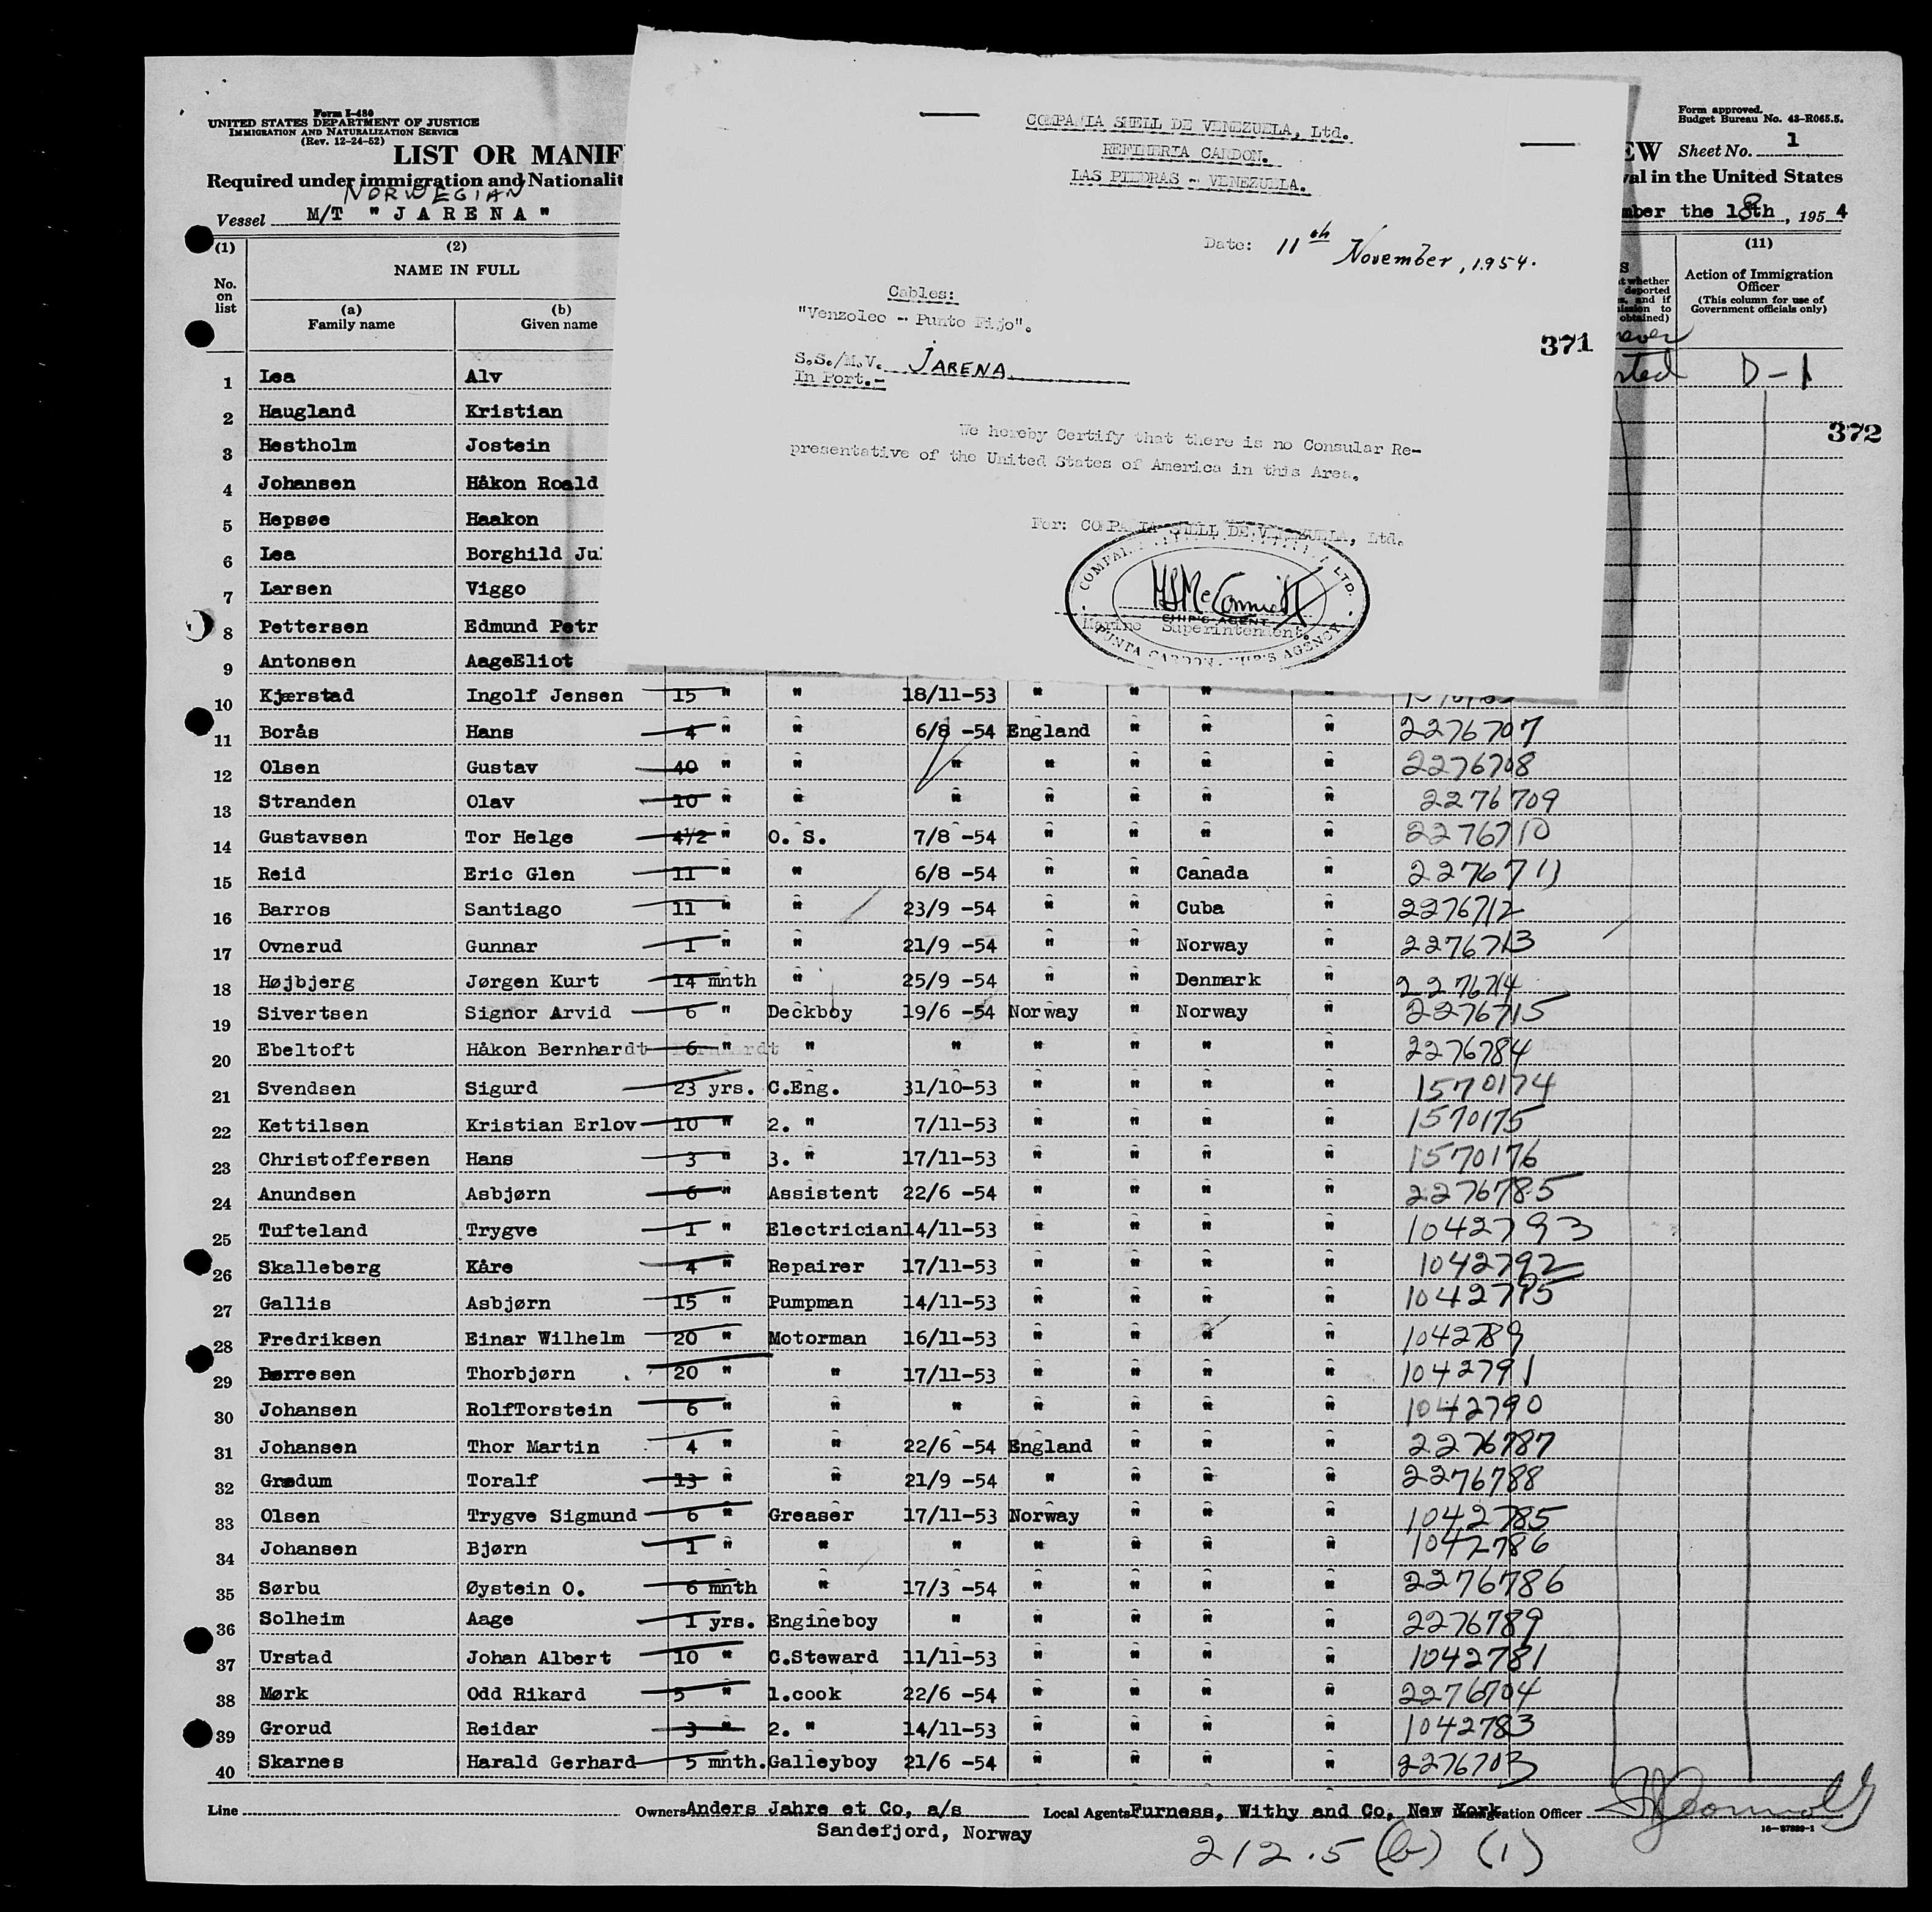 Form I-480
UNITED STATES DEPARTMENT OF JUSTICE
IMMIGRATION AND NATURALIZATION SERVICE
(Rev. 12-24-52)
LIST OR MANIF
Required under immigration and Nationalit
NORWEGIAN
Vessel M/T "JARENA"
Form approved.
Budget Bureau No. 43-R065.5.
EW Sheet No. 1
val in the United States
mber the 18th, 1954
COMPANIA SHELL DE VENEZUELA, Ltd.
REFINERIA CARDON.
LAS PIEDRAS - VENEZUELA.
Date: 11th November, 1954.
Cables:
"Venzoleo - Punto Fijo".
371
S.S./M.V. JARENA
In Port.-
We hereby Certify that there is no Consular Re-
presentative of the United States of America in this Area.
For: COMPANIA SHELL DE VENEZUELA, Ltd.
SHIP'S AGENT
Marine Superintendent.
PUNTA CARDON. SHIP'S AGENCY
(1) (2) (11)
No. on list
NAME IN FULL
(a) Family name
(b) Given name
Action of Immigration Officer
(This column for use of Government officials only)
372
1 Lea Alv D-1
2 Haugland Kristian
3 Hestholm Jostein
4 Johansen Håkon Roald
5 Hepsøe Haakon
6 Lea Borghild Jul
7 Larsen Viggo
8 Pettersen Edmund Petr
9 Antonsen AageEliot
10 Kjærstad Ingolf Jensen 15 " " 18/11-53 " " " "
11 Borås Hans 4 " " 6/8 -54 England " " " 2276707
12 Olsen Gustav 40 " " " " " " " 2276708
13 Stranden Olav 10 " " " " " " " 2276709
14 Gustavsen Tor Helge 4½ " O. S. 7/8 -54 " " " " 2276710
15 Reid Eric Glen 11 " " 6/8 -54 " " Canada " 2276711
16 Barros Santiago 11 " " 23/9 -54 " " Cuba " 2276712
17 Ovnerud Gunnar 1 " " 21/9 -54 " " Norway " 2276713
18 Højbjerg Jørgen Kurt 14 mnth " 25/9 -54 " " Denmark " 2276714
19 Sivertsen Signor Arvid 6 " Deckboy 19/6 -54 Norway " Norway " 2276715
20 Ebeltoft Håkon Bernhardt 6 " " " " " " " 2276784
21 Svendsen Sigurd 23 yrs. C.Eng. 31/10-53 " " " " 1570174
22 Kettilsen Kristian Erlov 10 " 2. " 7/11-53 " " " " 1570175
23 Christoffersen Hans 3 " 3. " 17/11-53 " " " " 1570176
24 Anundsen Asbjørn 6 " Assistent 22/6 -54 " " " " 2276785
25 Tufteland Trygve 1 " Electrician 14/11-53 " " " " 1042793
26 Skalleberg Kåre 4 " Repairer 17/11-53 " " " " 1042792
27 Gallis Asbjørn 15 " Pumpman 14/11-53 " " " "
28 Fredriksen Einar Wilhelm 20 " Motorman 16/11-53 " " " " 1042789
29 Børresen Thorbjørn 20 " " 17/11-53 " " " " 1042791
30 Johansen RolfTorstein 6 " " " " " " " 1042790
31 Johansen Thor Martin 4 " " 22/6 -54 England " " " 2276787
32 Grødum Toralf 13 " " 21/9 -54 " " " " 2276788
33 Olsen Trygve Sigmund 6 " Greaser 17/11-53 Norway " " " 1042785
34 Johansen Bjørn 1 " " " " " " " 1042786
35 Sørbu Øystein O. 6 mnth " 17/3 -54 " " " " 2276786
36 Solheim Aage 1 yrs. Engineboy " " " " " 2276789
37 Urstad Johan Albert 10 " C.Steward 11/11-53 " " " " 1042781
38 Mørk Odd Rikard 5 " 1.cook 22/6 -54 " " " " 2276704
39 Grorud Reidar 3 " 2. " 14/11-53 " " " " 1042783
40 Skarnes Harald Gerhard 5 mnth. Galleyboy 21/6 -54 " " " " 2276703
Line Owners Anders Jahre et Co, a/s Local Agents Furness, Withy and Co, New York Immigration Officer
Sandefjord, Norway
212.5 (b) (1)